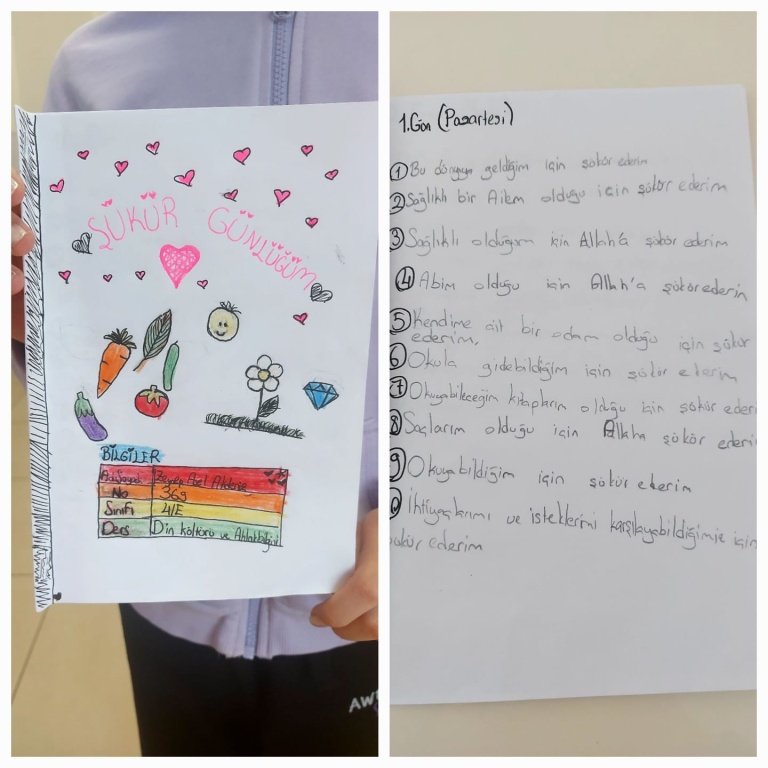 ŞÜKÜR GÜNLÜĞÜM
BİLGİLER
Adı Soyadı Zeynep Azel
No 363
Sınıfı 4/E
Ders Din kültürü ve Ahlakbilgisi
AW
1.Gün (Pazartesi)
1 Bu dünyaya geldiğim için şükür ederim
2 Sağlıklı bir Ailem olduğu için şükür ederim
3 Sağlıklı olduğum için Allah'a şükür ederim
4 Abim olduğu için Allah'a şükür ederim
5 Kendime ait bir odam olduğu için şükür
ederim,
6 Okula gidebildiğim için şükür ederim
7 Okuyabileceğim kitapların olduğu için şükür ederi
8 Saçlarım olduğu için Allaha şükür ederi
9 Okuyabildiğim için şükür ederim
0 İhtiyaçlarımı ve isteklerimi karşılayabildiğimiz için
şükür ederim